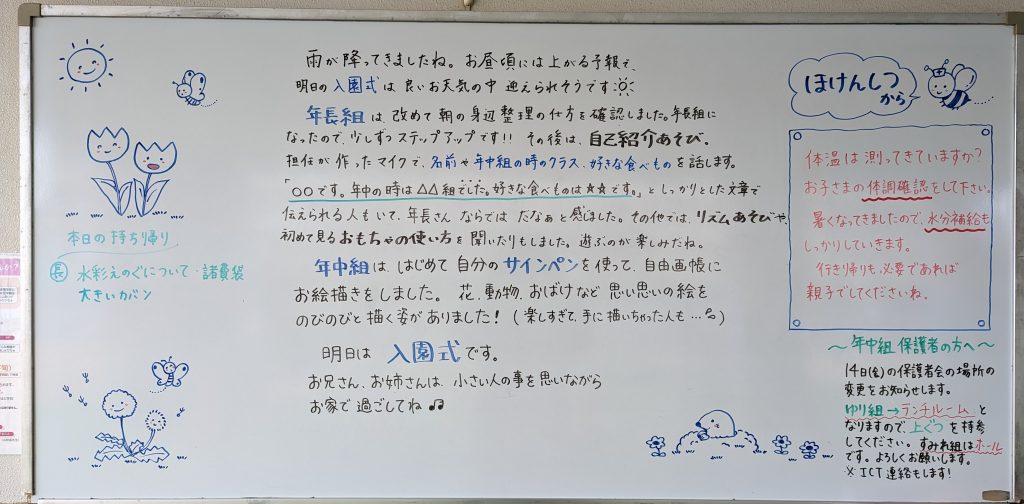 本日の持ち帰り
長 水彩えのぐについて・諸費袋
大きいカバン
雨が降ってきましたね。お昼頃には上がる予報で、
明日の入園式は良いお天気の中 迎えられそうです
年長組は、改めて朝の身辺整理の仕方を確認しました。年長組に
なったので、少しずつステップアップです!! その後は、自己紹介あそび。
担任が作ったマイクで、名前や年中組の時のクラス、好きな食べものを話します。
「○○です。年中の時は△△組でした。好きな食べものは☆☆です。」としっかりとした文章で
伝えられる人もいて、年長さんならではだなぁと感じました。その他では、リズムあそびや、
初めて見るおもちゃの使い方を聞いたりもしました。遊ぶのが楽しみだね。
年中組は、はじめて自分のサインペンを使って、自由画帳に
お絵描きをしました。花、動物、おばけなど思い思いの絵を
のびのびと描く姿がありました!(楽しすぎて、手に描いちゃった人も…)
明日は 入園式です。
お兄さん、お姉さんは、小さい人の事を思いながら
お家で過ごしてね♫
ほけんしつ
から
体温は測ってきていますか?
お子さまの体調確認をして下さい。
暑くなってきましたので、水分補給も
しっかりしていきます。
行き帰りも、必要であれば
親子でしてくださいね。
~年中組 保護者の方へ~
14日(金)の保護者会の場所の
変更をお知らせします。
ゆり組→ランチルーム と
なりますので、上ぐつを持参
してください。すみれ組はホール
です。よろしくお願いします。
※ICT連絡もします!